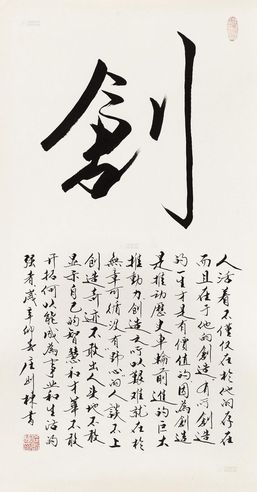 創
人活着不仅仅在于他的存在
而且在于他的创造有了创造
的一生才是有价值的因为创造
是推动歷史車輪前進的巨大
推動力创造之所以艰难就在於
無章可循没有野心的人谈不上
创造奇迹不敢出人头地不敢
显示自己的智慧和才華不敢
开拓何以能成為事业和生活的
强者歲辛卯春庄则棟書